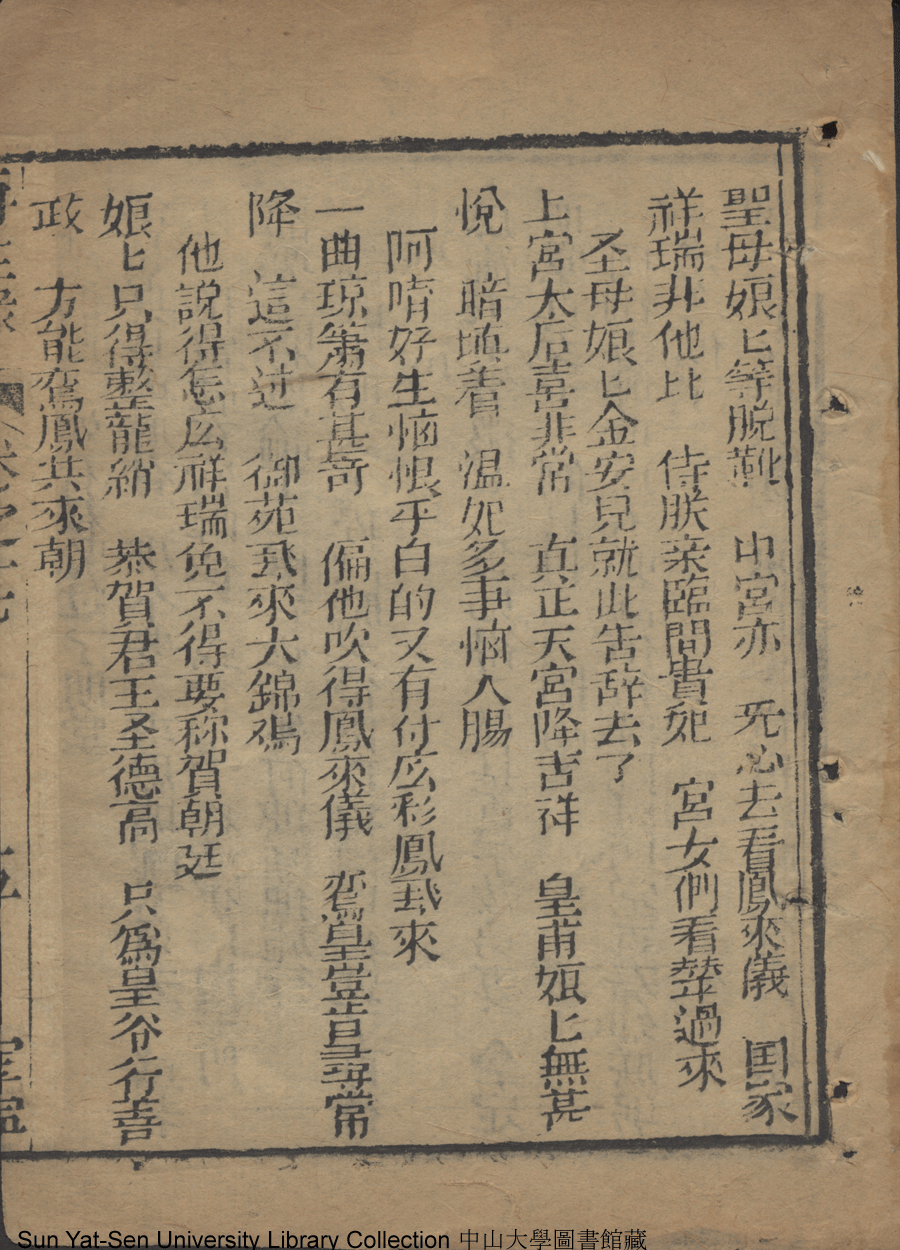 聖母娘匕等脫靴　中宮亦　旡必去看鳳來儀　国家
祥瑞非他比　侍朕亲臨間貴妃　宮女們看輦過來
圣母娘匕金安見就此告辞去了
上宮太后喜非常　真正天宮降吉祥　皇甫娘匕無甚
悅　暗填着　温妃多事惱人腸
阿唷好生惱恨平白的又有什庅彩鳳飛來
一曲琼簫有甚奇　偏他吹得鳳來儀　鸞皇豈肯尋常
降　這不过　御苑飛來大錦鳮
他說得怎庅祥瑞免不得要称賀朝廷
娘匕只得整龍綃　恭賀君王圣德高　只為皇爷行善
政　方能鸞鳳共來朝
Sun Yat-Sen University Library Collection 中山大學圖書館藏